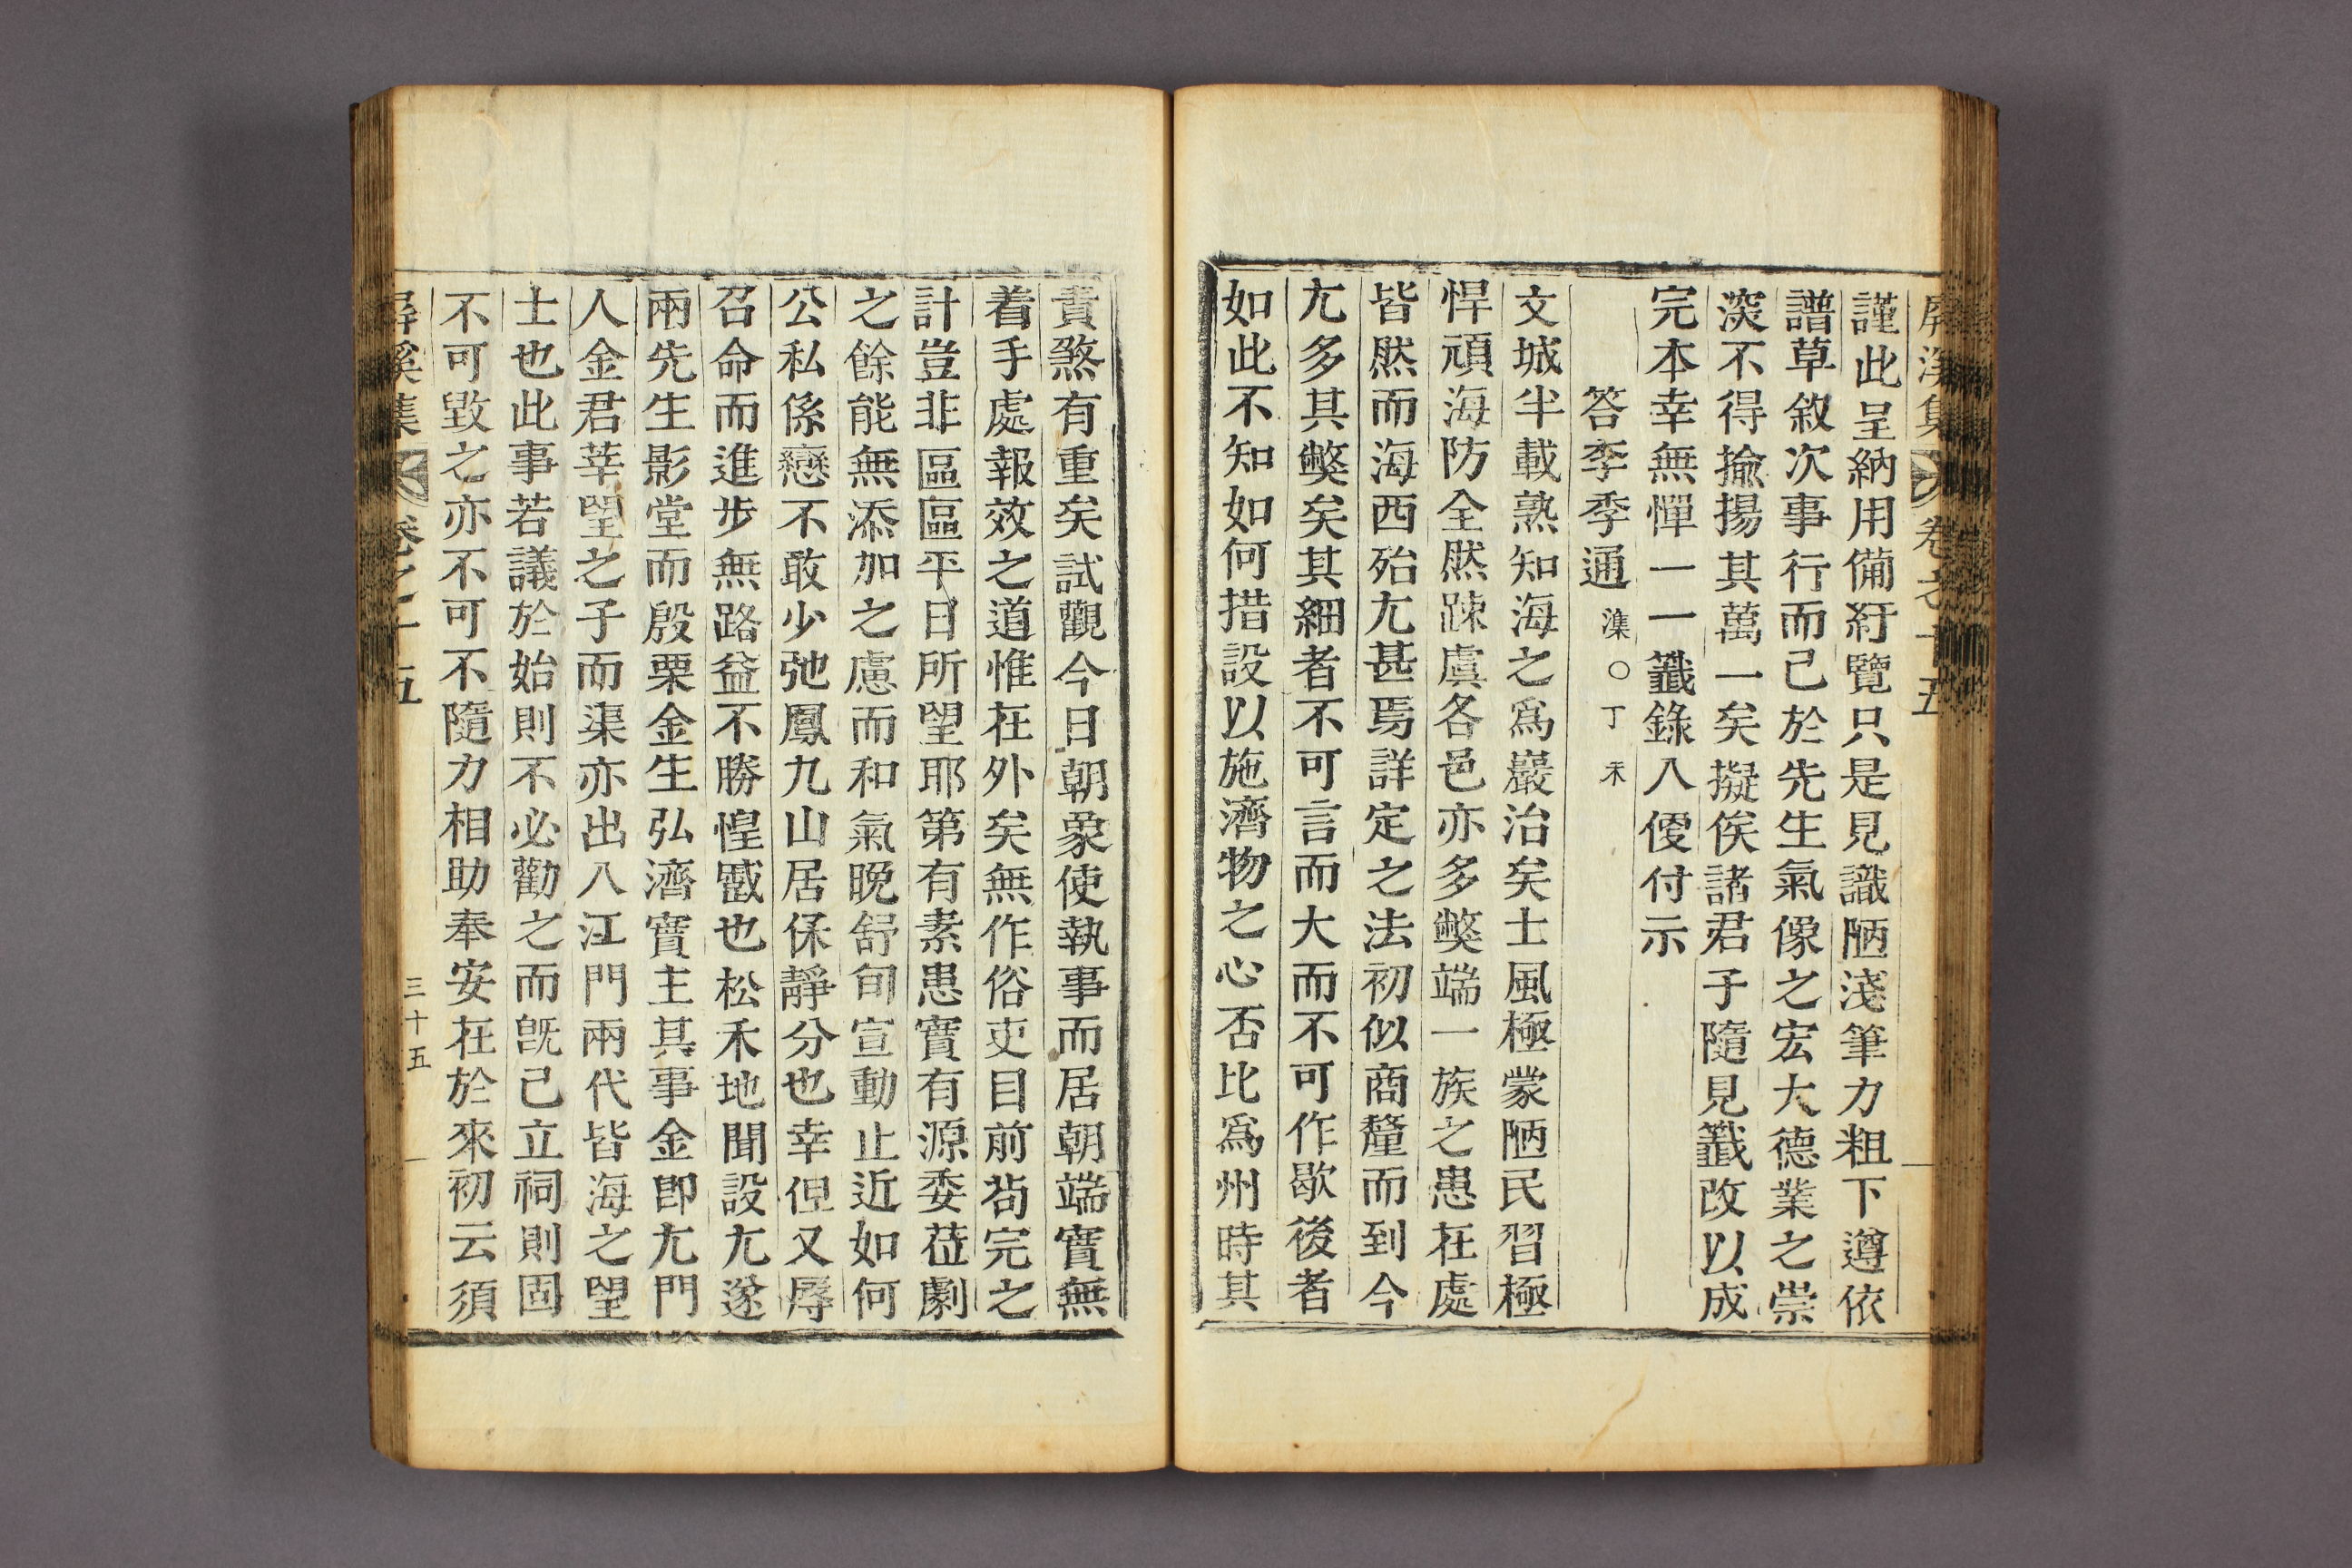 屛溪集 卷之十五
謹此呈納用備紆覽只是見識陋淺筆力粗下遵依
譜草敘次事行而已於先生氣像之宏大德業之崇
深不得揄揚其萬一矣擬俟諸君子隨見籤改以成
完本幸無憚一一籤錄入便付示
答李季通 潗○丁未
文城半載熟知海之爲巖治矣士風極蒙陋民習極
悍頑海防全然踈虞各邑亦多獘端一族之患在處
皆然而海西殆尤甚焉詳定之法初似商釐而到今
尤多其獘矣其細者不可言而大而不可作歇後者
如此不知如何措設以施濟物之心否比爲州時其
責煞有重矣試觀今日朝象使執事而居朝端實無
着手處報效之道惟在外矣無作俗吏目前苟完之
計豈非區區平日所望耶第有素患實有源委莅劇
之餘能無添加之慮而和氣晩舒旬宣動止近如何
公私係戀不敢少弛鳳九山居保靜分也幸但又辱
召命而進步無路益不勝惶蹙也松禾地聞設尤遂
兩先生影堂而殷栗金生弘濟實主其事金卽尤門
人金君莘望之子而渠亦出入江門兩代皆海之望
士也此事若議於始則不必勸之而旣已立祠則固
不可毀之亦不可不隨力相助奉安在於來初云須
屛溪集 卷之十五 三十五